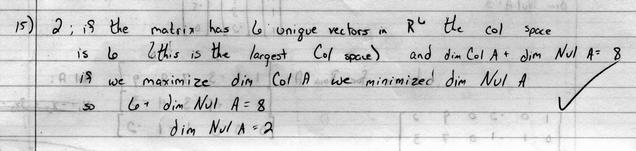 15) 2; if the matrix has 6 unique vectors in R⁶ the col space
is 6 (this is the largest Col space) and dim Col A + dim Nul A = 8
if we maximize dim Col A we minimized dim Nul A
so 6 + dim Nul A = 8
dim Nul A = 2